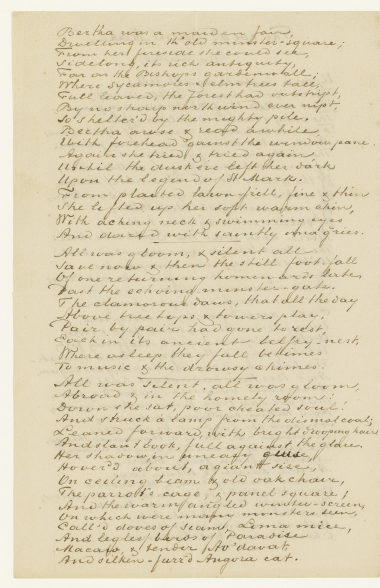 Bertha was a maiden fair,
Dwelling in th' old minster-square;
From her fireside she could see,
Sidelong, its rich antiquity,
Far as the Bishop's garden wall;
Where Sycamores & elm trees tall,
Full leaved, the forest had outstript,
By no sharp north wind ever nipt,
So shelter'd by the mighty pile.
Bertha arose & read awhile
With forehead 'gainst the window pane.
Again she tried, & tried again,
Until the dusk eve left her dark
Upon the legend of St Mark.
From plaited lawn frill, fine & thin
She lifted up her soft warm chin,
With aching neck & swimming eyes
And dazed with saintly imageries.
All was gloom, & silent all
Save now & then the still foot fall
Of one returning homewards late,
Past the echoing minster-gate.
The clamorous daws, that all the day
Above tree tops & towers play,
Pair by pair had gone to rest,
Each in its ancient belfry-nest,
Where asleep they fall betimes
To music & the drowsy chimes.
All was silent, all was gloom,
Abroad & in the homely room:
Down she sat, poor cheated soul!
And struck a lamp from the dismal coal;
Leaned forward, with bright drooping hair
And slant book, full against the glare.
Her shadow, in uneasy guise,
Hover'd about, a giant size,
On ceiling beam & old oak chair,
The parrot's cage, & panel square;
And the warm angled winter-screen,
On which were many monsters seen,
Call'd doves of Siam, Lima mice,
And legless birds of Paradise
Macaw, & tender Av'davat,
And silken-furr'd Angora cat.